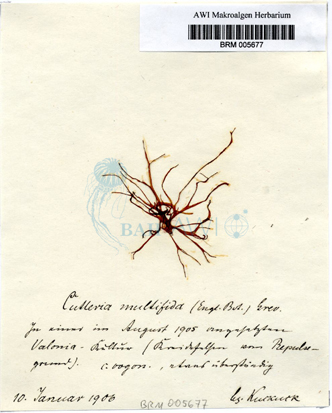 AWI Makroalgen Herbarium
BRM 005677
Cutleria multifida (Engl. Bot.) Grev.
In einer im August 1905 angesetzten
Valonia-Kultur (Kreidefelsen von
grund). c. oogon., etwas überständig
10. Januar 1906
BRM 005677
Kuckuck